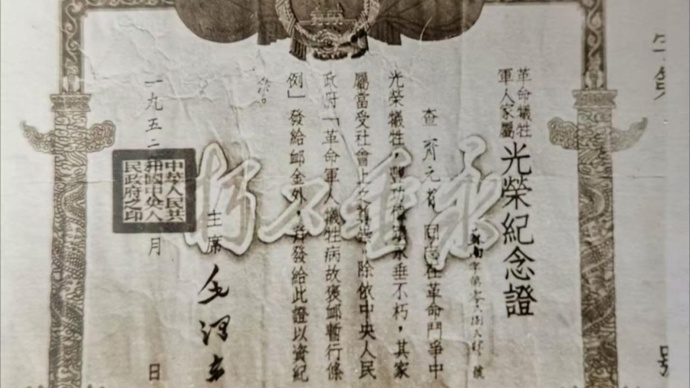 革命犧牲
軍人家屬
光榮紀念證
字第
號
查
同志在革命鬥爭中
光榮犧牲,豐功偉績永垂不朽,其家
屬當受社會上之尊崇。除依中央人民
政府「革命軍人犧牲病故褒卹暫行條
例」發給卹金外,并發給此證以資紀
念。
主席 毛澤東
一九五二年 月 日
中華人民共
和國中央人
民政府之印
永垂不朽